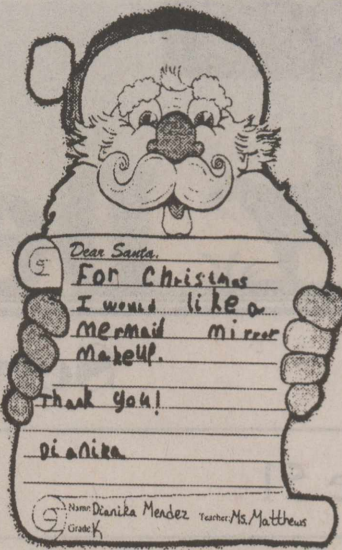 Dear Santa,
For Christmas
I would like a
mermaid mirror
makeup.
Thank you!
Dianika
Name: Dianika Mendez Teacher: Ms. Matthews
Grade: K